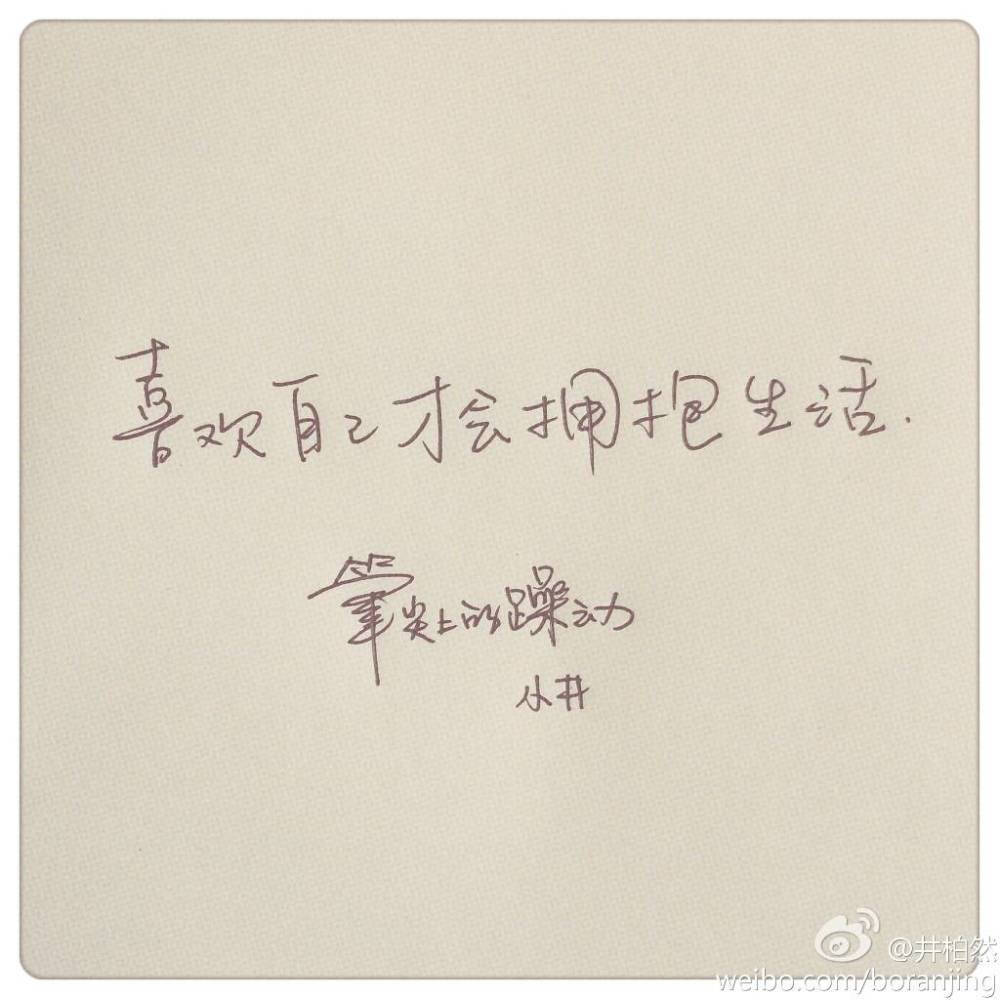 喜欢自己才会拥抱生活.
筆尖上的躁动
小井
@井柏然
weibo.com/boranjing